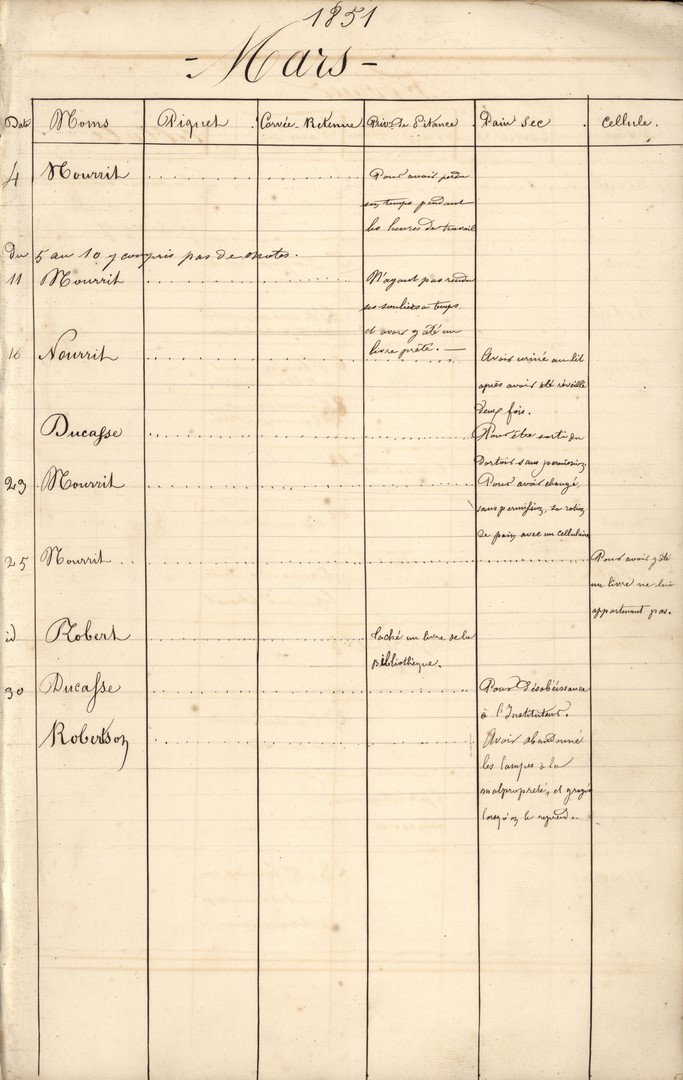 1851
- Mars -
Date Noms Piquet Corvée-Retenue Priv. de Pitance Pain sec Cellule.
4 Nourrit Pour avoir perdu
son temps pendant
les heures de travail
Du 5 au 10 y compris pas de notes.
11 Nourrit N'ayant pas rendu
ses souliers à temps
et avoir gâté un
livre prêté. —
16 Nourrit Avoir uriné au lit
après avoir été réveillé
deux fois.
Ducasse Pour être sorti du
dortoir sans permission.
23 Nourrit Pour avoir changé,
sans permission, sa ration
de pain avec un cellulaire
25 Nourrit Pour avoir gâté
un livre ne lui
appartenant pas.
id Robert taché un livre de la
Bibliothèque.
30 Ducasse Pour désobéissance
à l'Instituteur.
Robertson Avoir abandonné
les lampes à la
malpropreté, et
lorsqu'on le reprend.